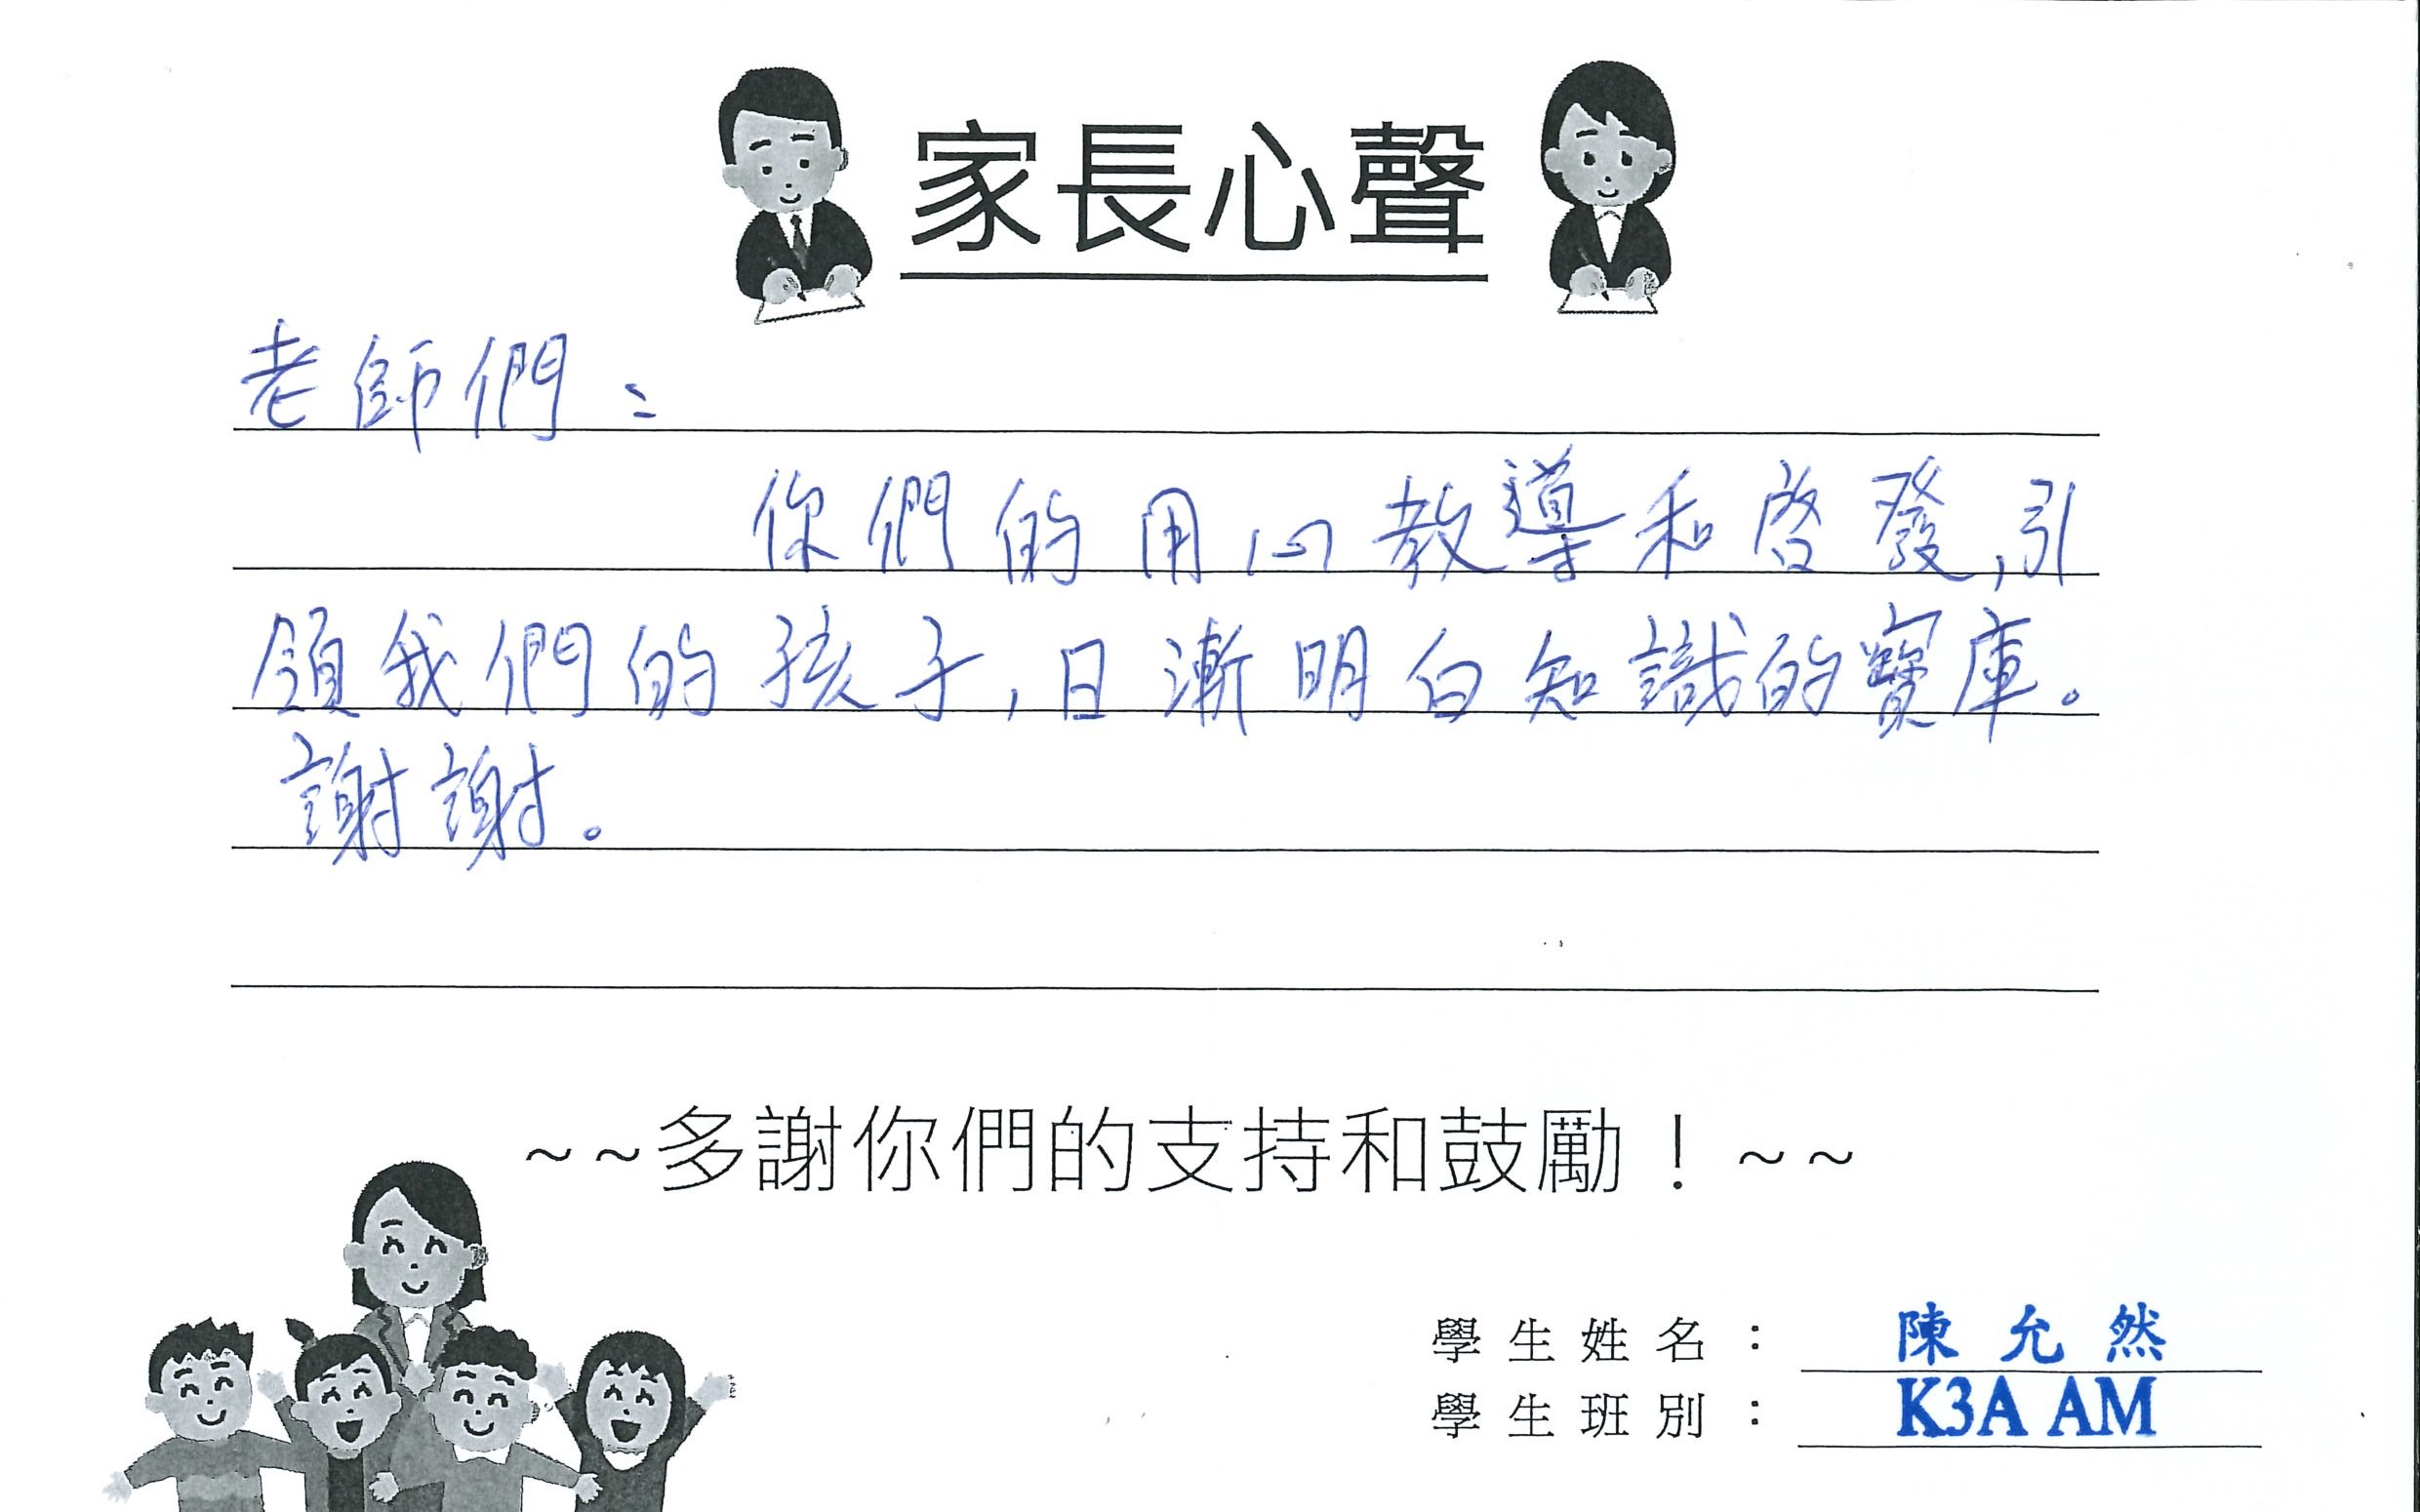 家長心聲
老師們：
你們的用心教導和啓發,引
領我們的孩子,日漸明白知識的寶庫。
謝謝。
~~多謝你們的支持和鼓勵！~~
學生姓名： 陳允然
學生班別： K3A AM